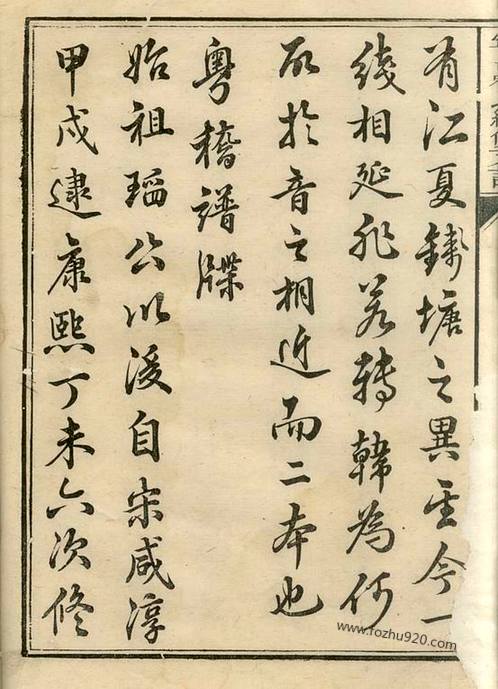 有江夏錢塘之異至今一
綫相延非若轉韓為何
於音之相近而二本也
粵稽譜牒
始祖瑫公以後自宋咸淳
甲戍逮康熙丁未六次修
www.fozhu920.com